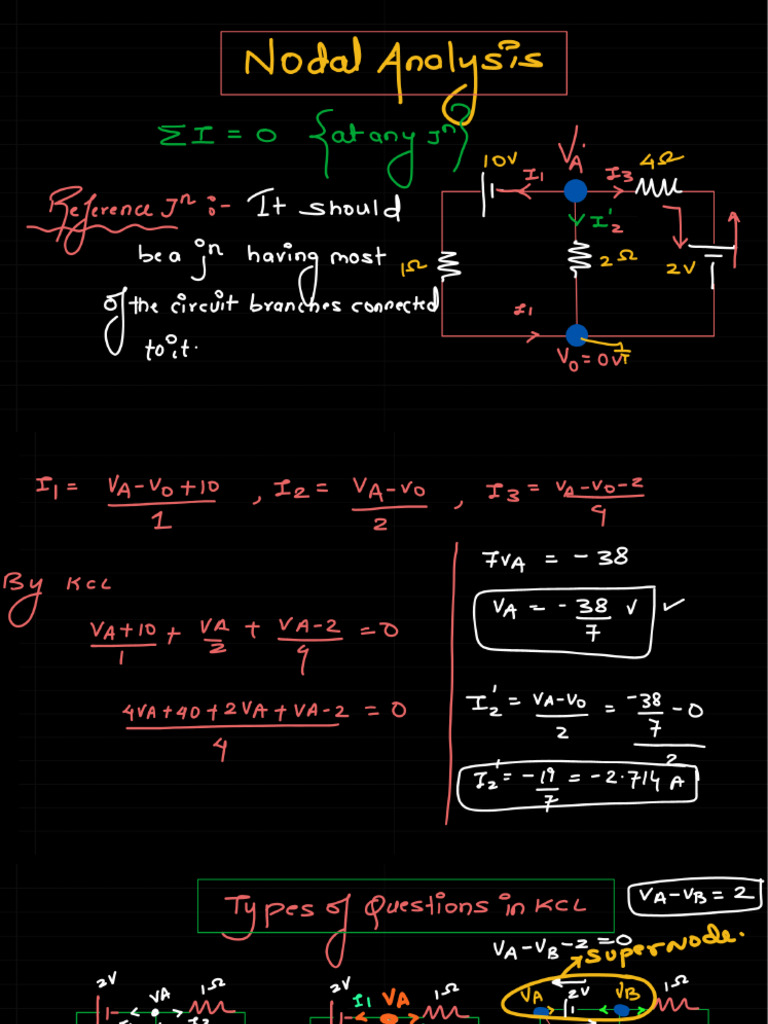 Nodal Analysis
ΣI = 0 {at any Jⁿ}
Reference Jⁿ :- It should
be a jⁿ having most
of the circuit branches connected
to it.
10V I₁ V_A I₃ 4Ω
I₂'
1Ω 2Ω 2V
I₁
V₀ = 0V
I₁ = (V_A - V₀ + 10)/1 , I₂ = (V_A - V₀)/2 , I₃ = (V_A - V₀ - 2)/4
By KCL
(V_A + 10)/1 + V_A/2 + (V_A - 2)/4 = 0
(4V_A + 40 + 2V_A + V_A - 2)/4 = 0
7V_A = -38
V_A = -38/7 V ✓
I₂' = (V_A - V₀)/2 = (-38/7 - 0)/2
I₂' = -19/7 = -2.714 A
Types of Questions in KCL
V_A - V_B = 2
V_A - V_B - 2 = 0
supernode.
2V V_A 1Ω
2V I₁ V_A 1Ω
V_A 2V V_B 1Ω